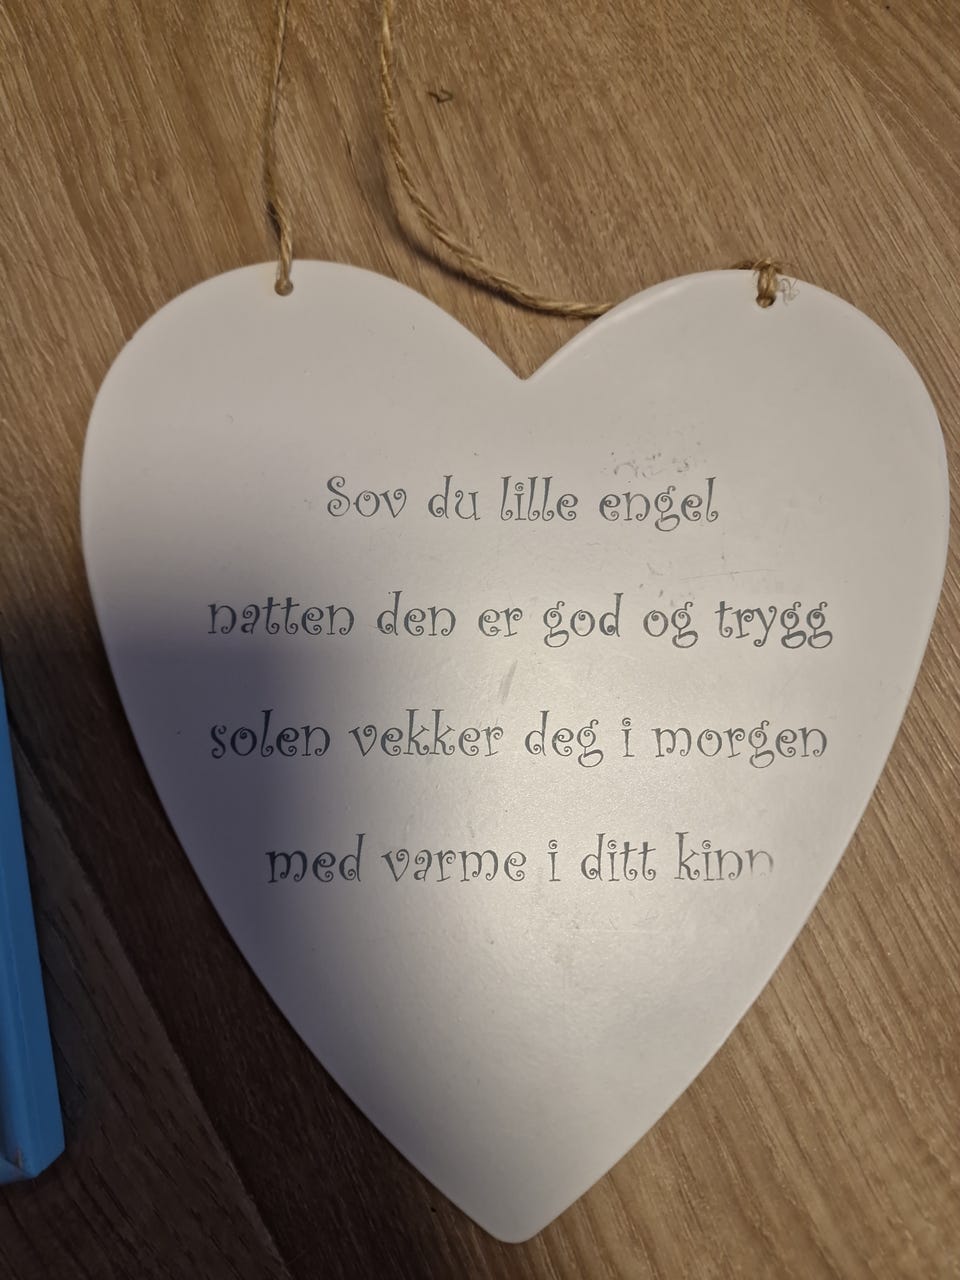 Sov du lille engel
natten den er god og trygg
solen vekker deg i morgen
med varme i ditt kinn